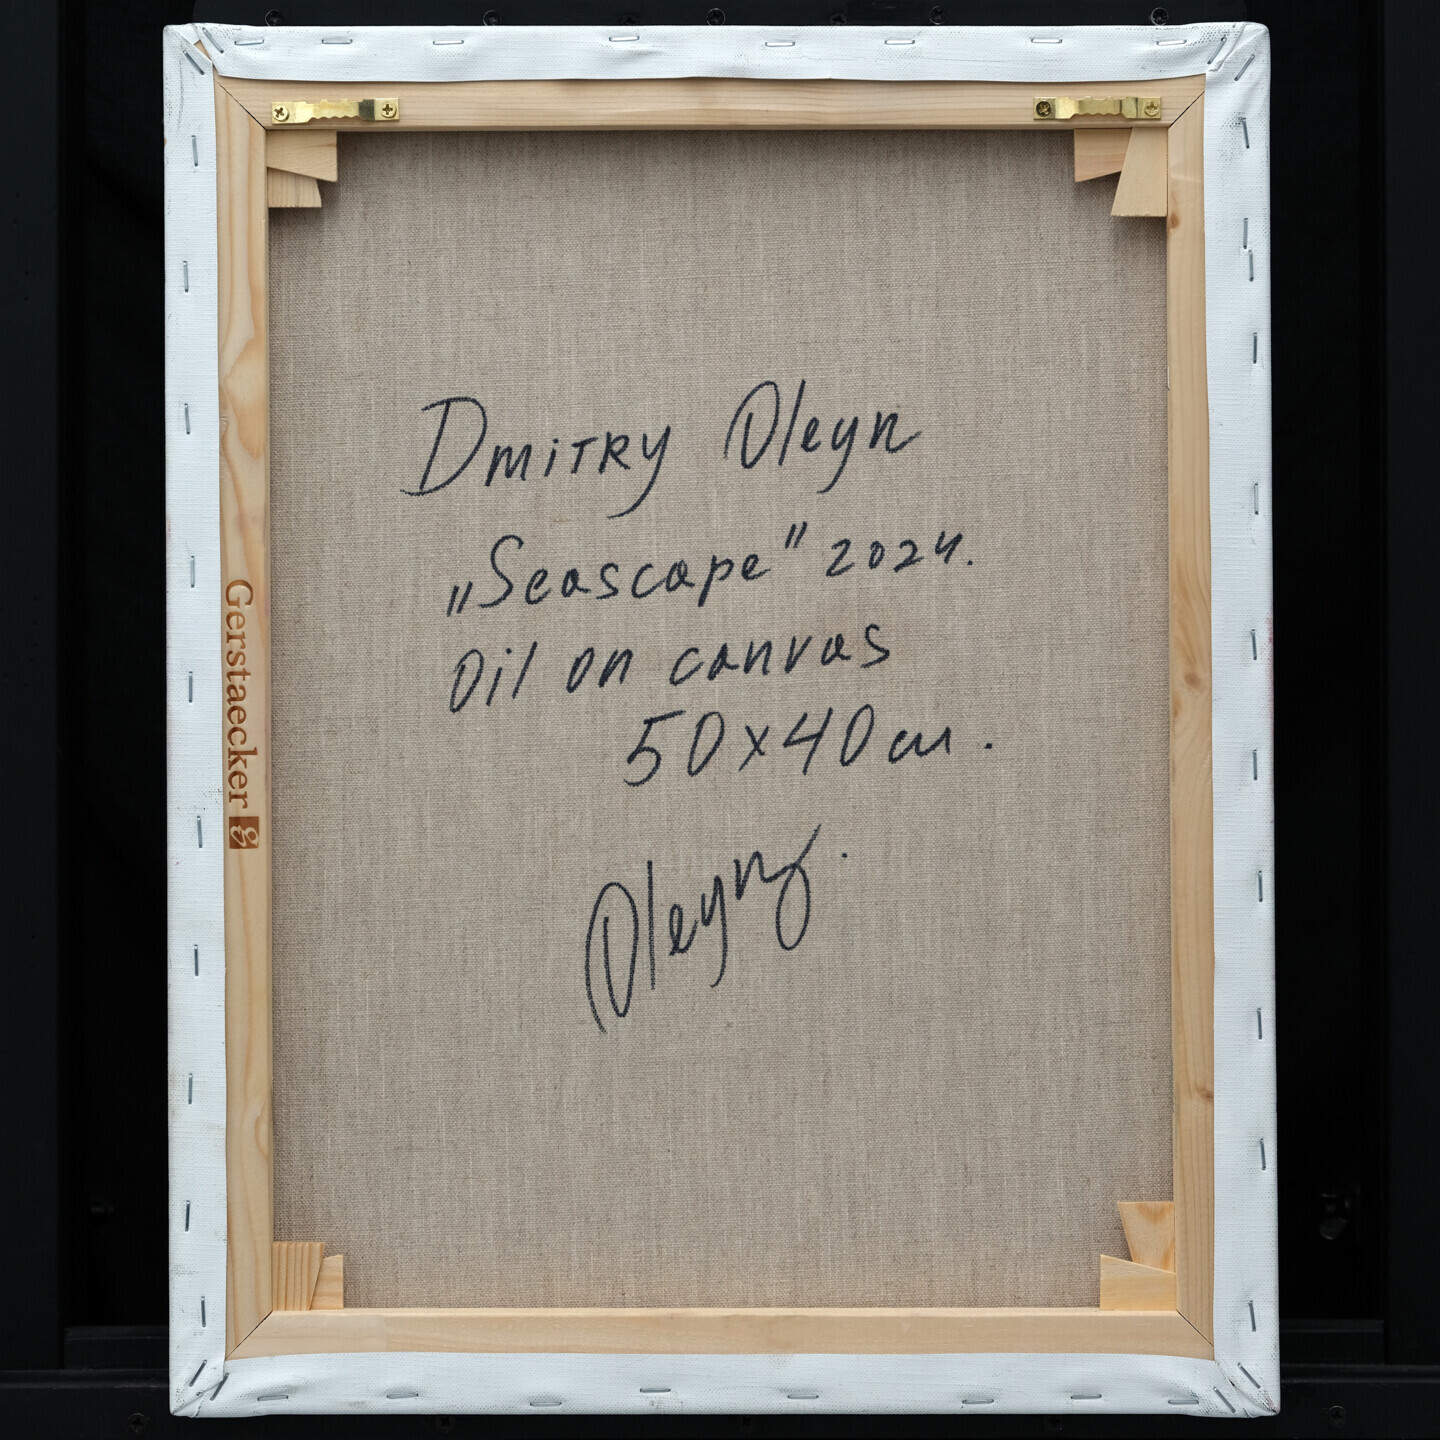 Dmitry Oleyn
„Seascape" 2024.
Oil on canvas
50x40 cm.
Oleyn.
Gerstaecker